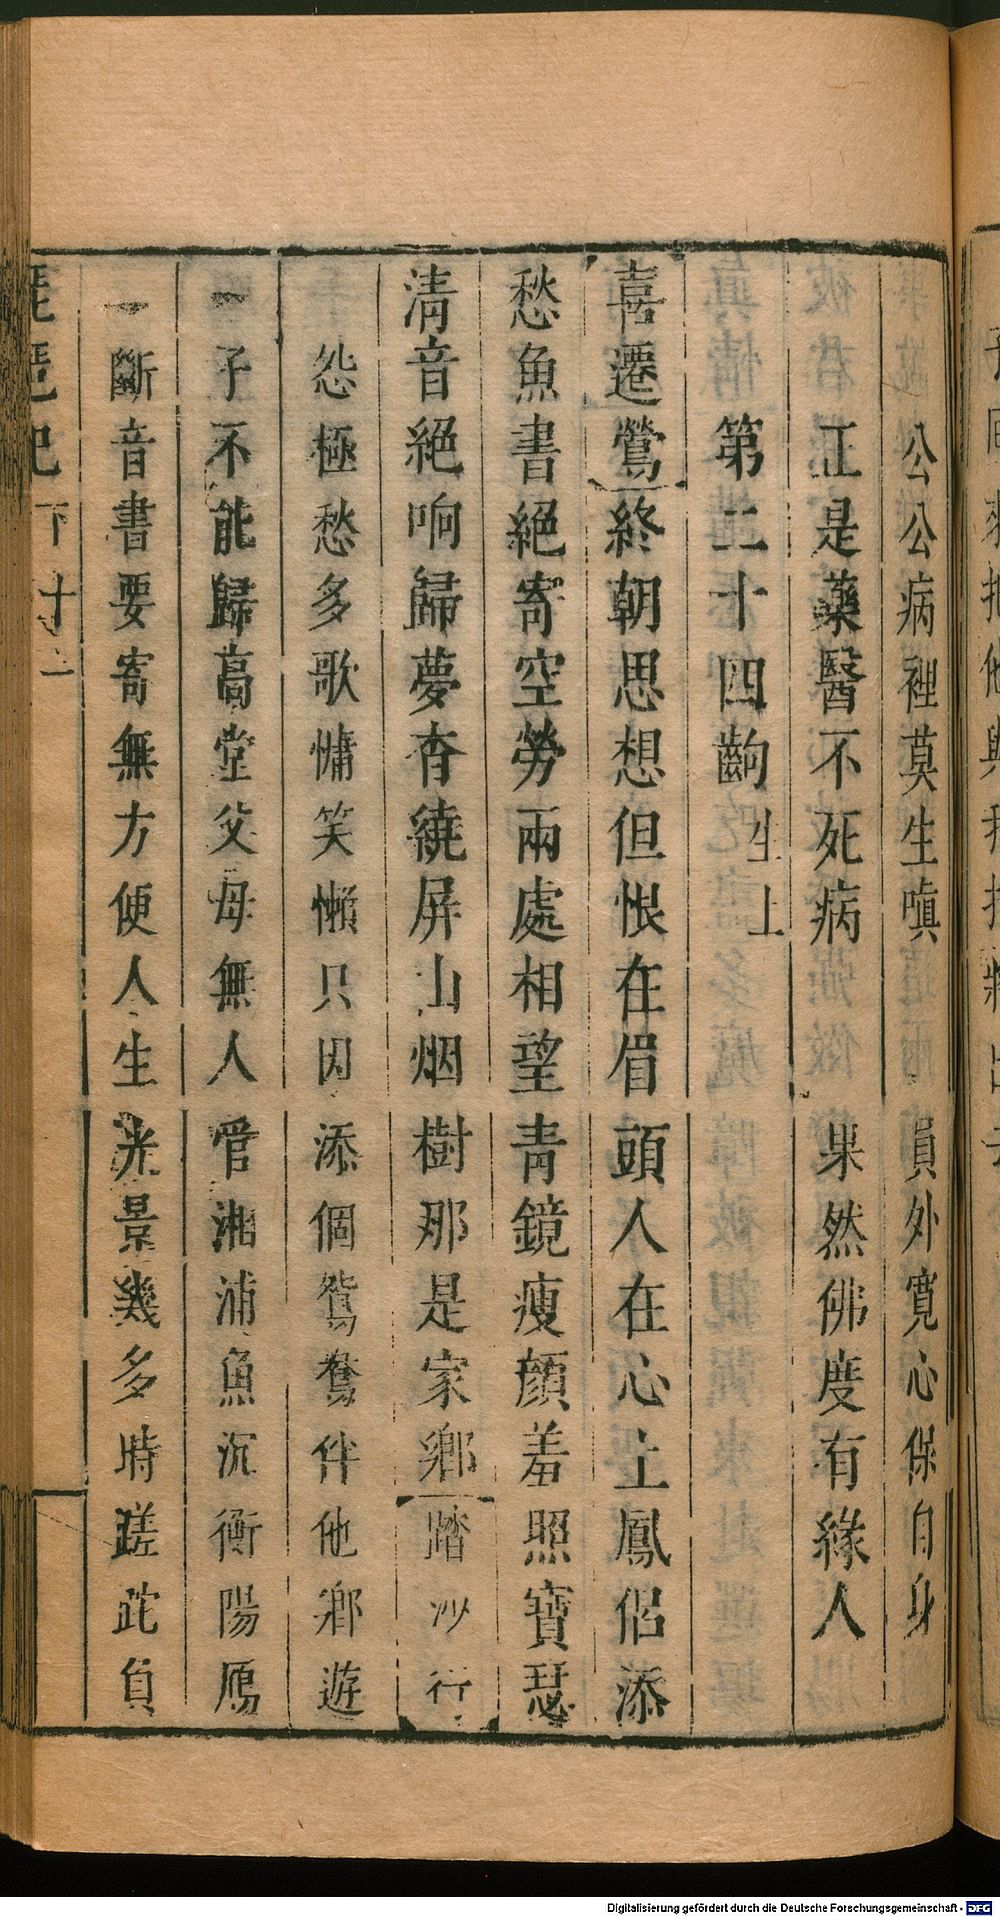 公公病裡莫生嗔　員外寛心保自身
正是藥醫不死病　果然佛度有緣人
第二十四齣 生上
喜遷鶯 終朝思想但恨在眉頭人在心上鳳侶添
愁魚書絕寄空勞兩處相望青鏡瘦顔羞照寶瑟
清音絕响歸夢杳繞屏山烟樹那是家鄉 踏沙行
怨極愁多歌慵笑懶只因添個鴛鴦伴他鄉遊
子不能歸高堂父母無人管湘浦魚沉衡陽鴈
斷音書要寄無方便人生光景幾多時蹉跎負
琵琶記 下 十二
Digitalisierung gefördert durch die Deutsche Forschungsgemeinschaft - DFG